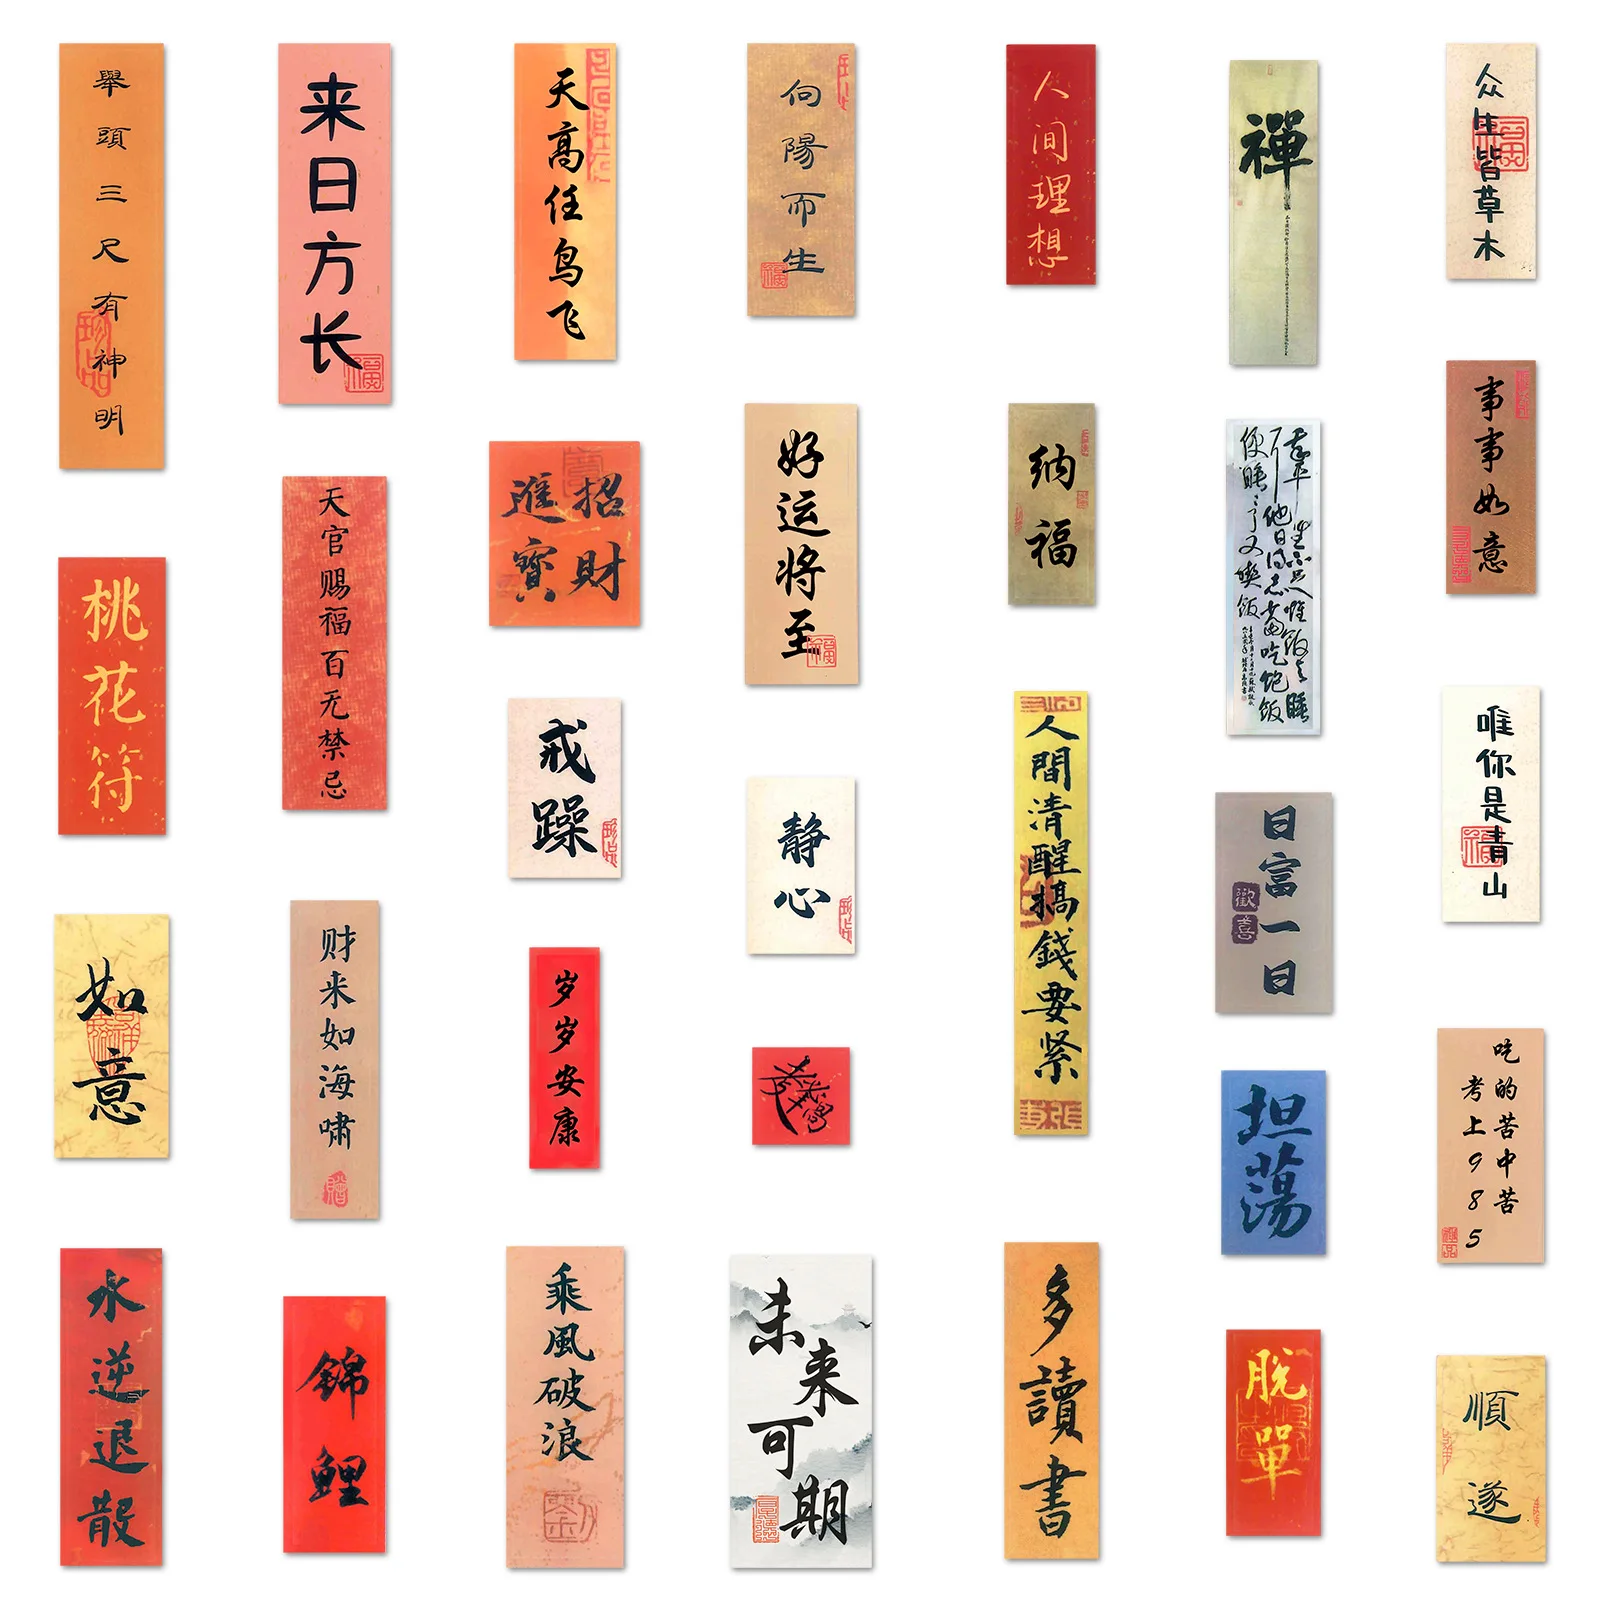 舉頭三尺有神明
桃花符
如意
水逆退散
来日方长
天官赐福百无禁忌
财来如海啸
錦鲤
天高任鸟飞
招財
進寶
戒躁
岁岁安康
乘風破浪
向陽而生
好运将至
静心
未来可期
人间理想
纳福
人間清醒搞錢要紧
多讀書
禪
日富一日
歡喜
坦蕩
脫單
众生皆草木
事事如意
唯你是青山
吃的苦中苦
考上985
順遂